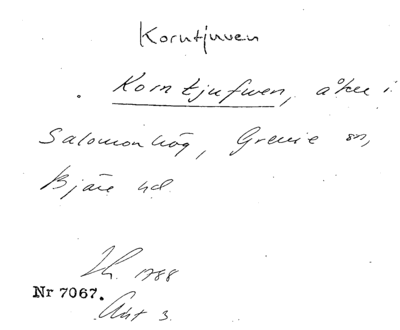 Korntjuven
Korntjufwen, åker i
Salomonhög, Grevie sn,
Bjäre hd.
Lh. 1788
Nr 7067.
Akt 3.